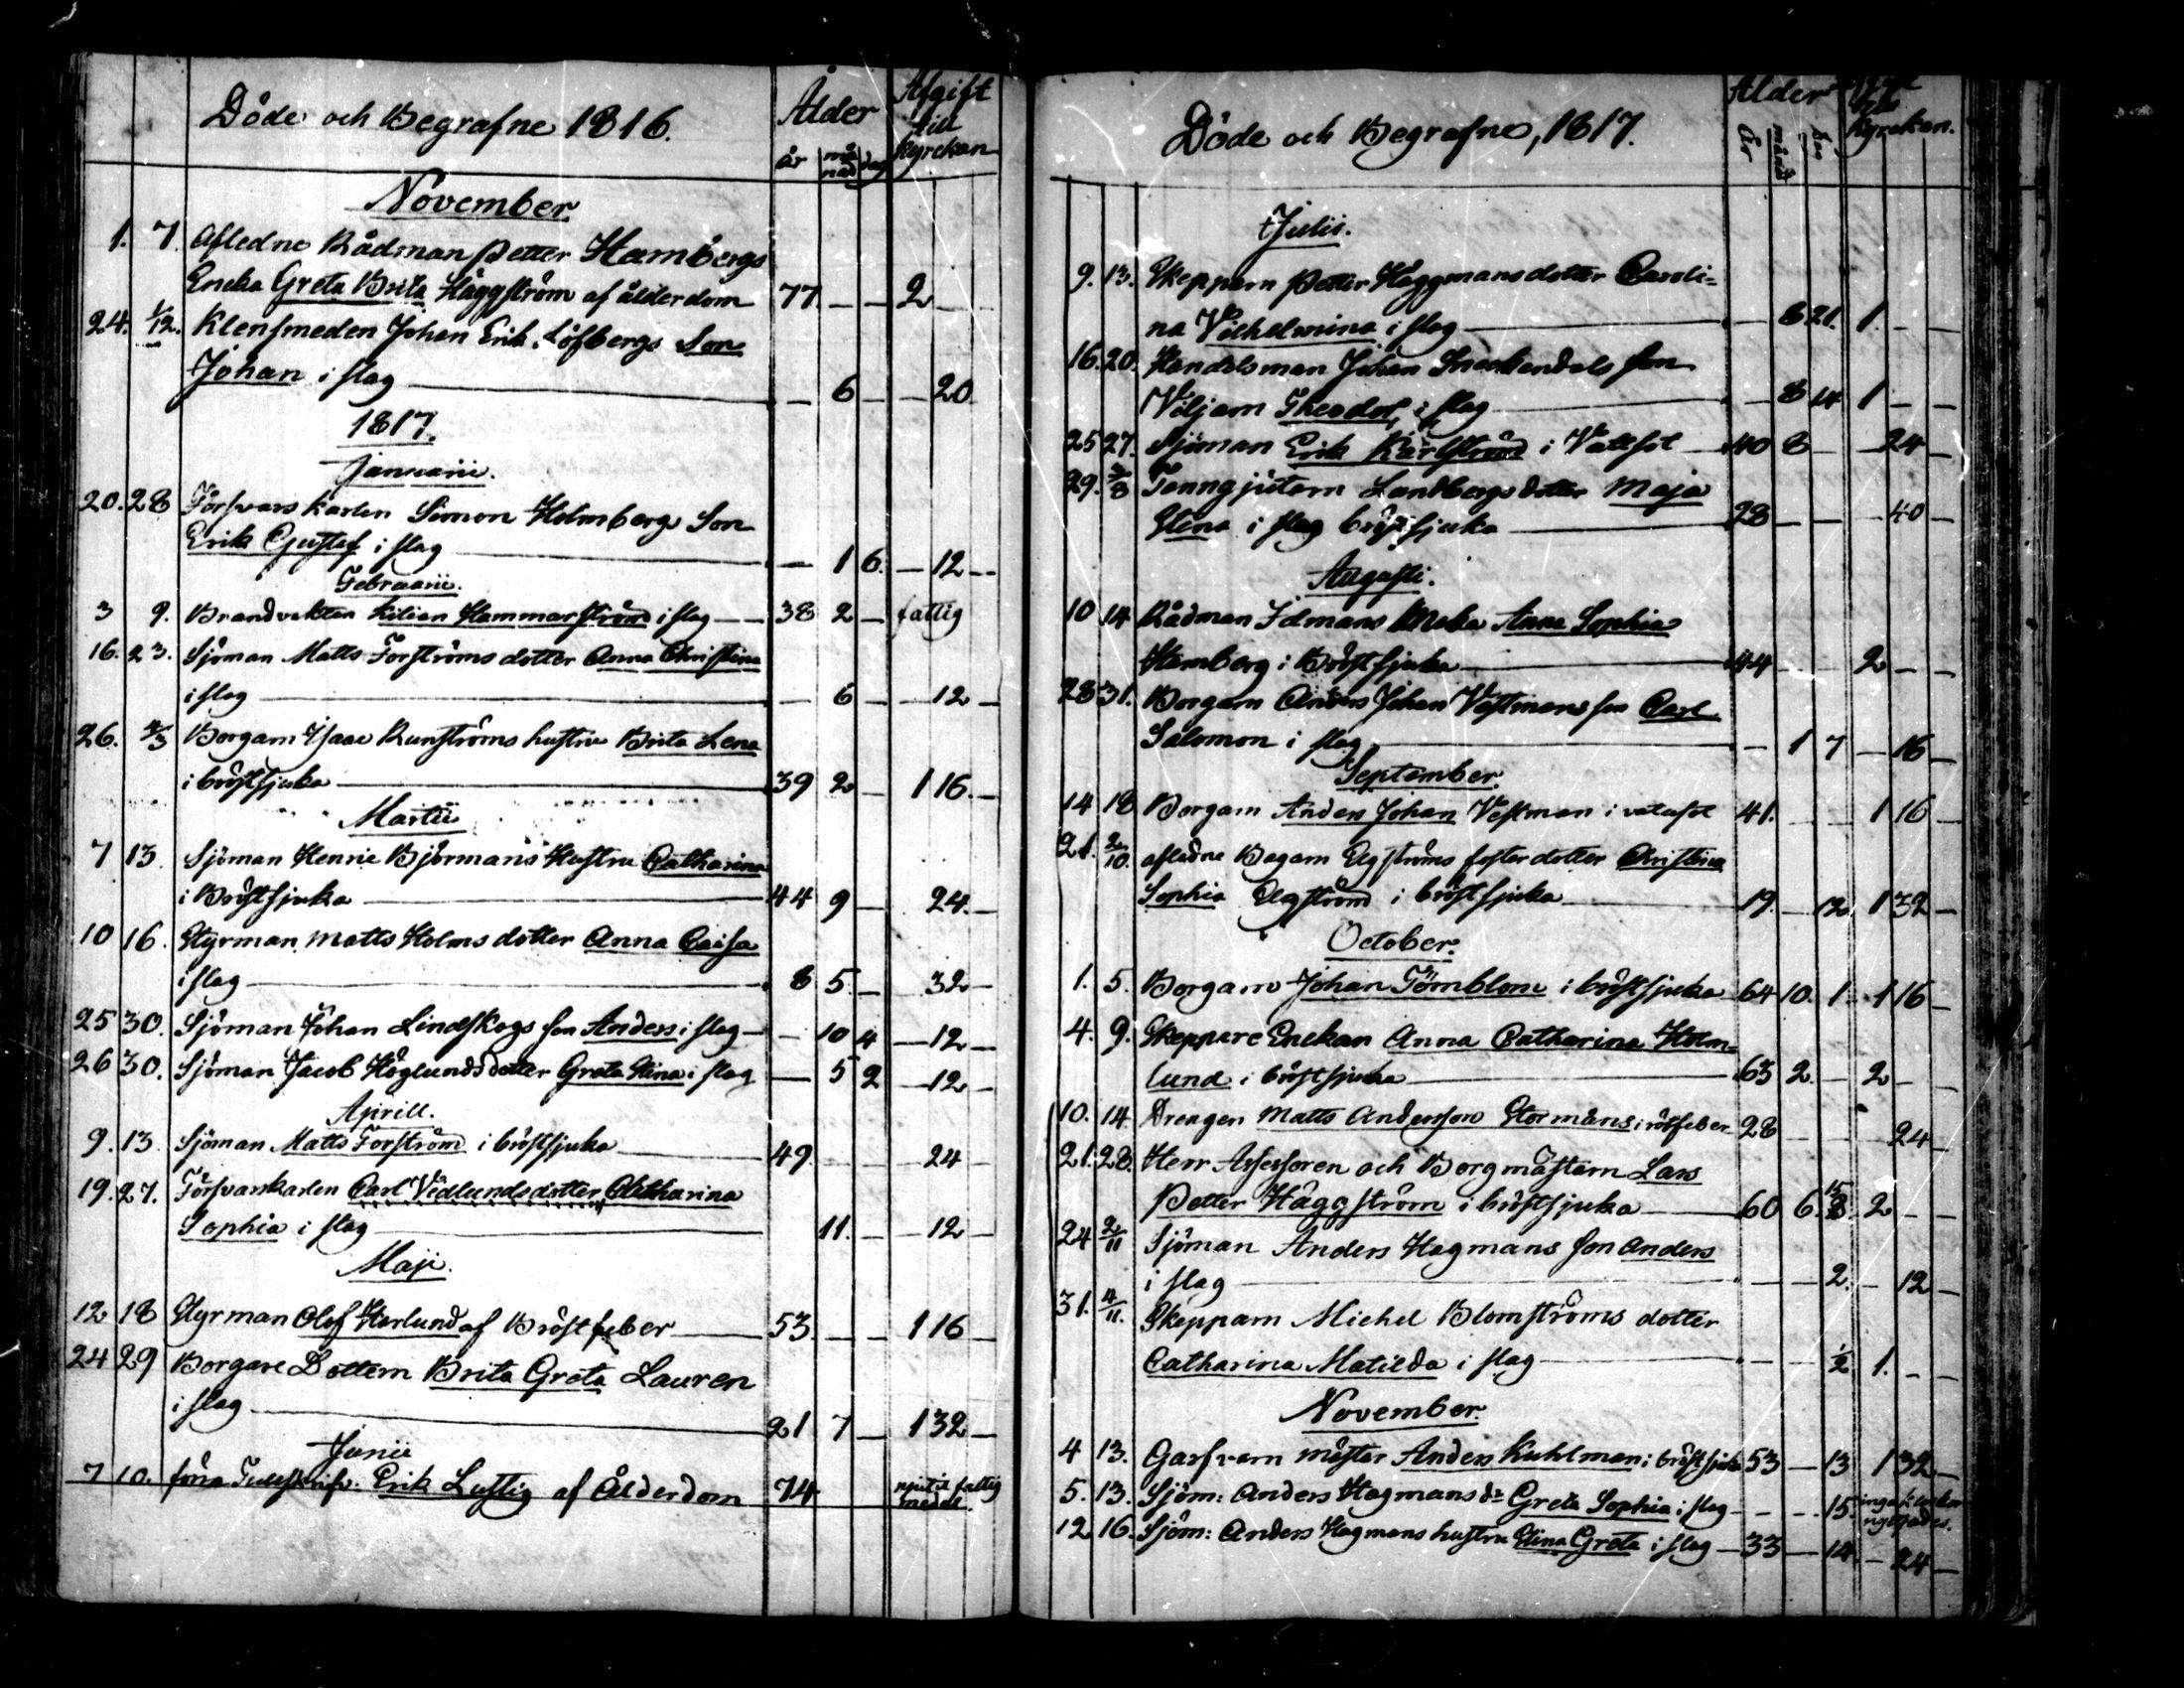 Döde och Begrafne 1816.
Ålder
år månad dag
Afgift till Kyrckan
November
1. 7. Afledne Rådman Petter Hambergs
Encka Greta Brita Häggström af ålderdom 77 — — 2
24. 1/12. Klensmeden Johan Erik Löfbergs Son
Johan i slag — 6 — — 20
1817.
Januarii.
20. 28 Försvars karlen Simon Holmbergs Son
Erik Gustaf i slag — 1 6. — 12 —
Februarii.
3 9. Brandvakten Kilian Hammarström i slag — 38 2 — fattig
16. 23. Sjöman Matts Forströms dotter Anna Christina
i slag — 6 — — 12 —
26. 4/3 Borgarn Isaac Runströms hustru Brita Lena
i bröstsjuka 39 2 — 1 16. —
Martii
7 13. Sjöman Henric Björmans Hustru Catharina
i Bröstsjuka 44 9 — 24. —
10 16. Styrman Matts Holms dotter Anna Caisa
i slag 8 5. — 32 —
25 30. Sjöman Johan Lindskogs son Anders i slag — 10 4 — 12 —
26 30. Sjöman Jacob Höglunds dotter Greta Stina i slag — 5 2 — 12 —
Aprill.
9. 13. Sjöman Matts Forström i bröstsjuka 49. — 24 —
19. 27. Försvarskarlen Carl Vedlunds dotter Catharina
Sophia i slag 11. — — 12 —
Maji.
12 18 Styrman Olof Harlund af Bröstfeber 53. — — 1 16 —
24 29 Borgare Dottern Brita Greta Lauren
i slag 21 7 — 1 32 —
Junii
7 10. förra Tullskrifv. Erik Lustig af Ålderdom 74 fattig
medel.
Döde och Begrafne, 1817.
Ålder
år månad dag
Kyrckan.
Julii.
9. 13. Skeppern Petter Häggmans dotter Caroli=
na Vilhelmina i slag — 8 21. 1. — —
16. 20. Handelsman Johan Snechendals son
Viljam Theodor, i slag — 8 14 1 — —
25 27. Sjöman Erik Karlström i Vattsot 40 8 — 24 —
29. 3/8 Tenngjutarn Landbergs dotter Maja
Stina i slag bröstsjuka 28 — — — 40 —
Augusti.
10 14 Rådman Idmans Maka Anna Sophia
Hamberg i Bröstsjuka 44 — — 2 — —
28 31. Borgarn Anders Johan Vestmans son Carl
Salomon i slag — 1 7 — 16 —
September.
14 18 Borgarn Anders Johan Vestman i vatusot 41. — 1 16
21. 2/10. afledne Bagarn Elgströms foster dotter Christina
Sophia Elgström i bröstsjuka 19. — 12. 1 32 —
October.
1. 5. Borgarn Johan Törnblom i bröstsjuka 64 10. 1. 1 16 —
4. 9. Skeppare Enckan Anna Catharina Holm=
lund i bröstsjuka 63 2. — 2 —
10. 14 Drengen Matts Andersson Stormåns i rötfeber 28 — — 24 —
21. 28. Herr Assessoren och Borgmästarn Lars
Petter Häggström i bröstsjuka 60 6. 2 — —
24 2/11 Sjöman Anders Hagmans son Anders
i slag — — 2. — 12 —
31. 4/11. Skepparn Michel Blomströms dotter
Catharina Matilda i slag — — 1/2 1. — —
November.
4 13. Garfvarn mäster Anders Kuhlman i bröstsjuka 53 — 13 1 32 —
5. 13. Sjöm: Anders Hagmans dr Greta Sophia i slag — — 15. inga klockor
12 16. Sjöm: Anders Hagmans hustru Stina Greta i slag — 33 — 14. — 24 —